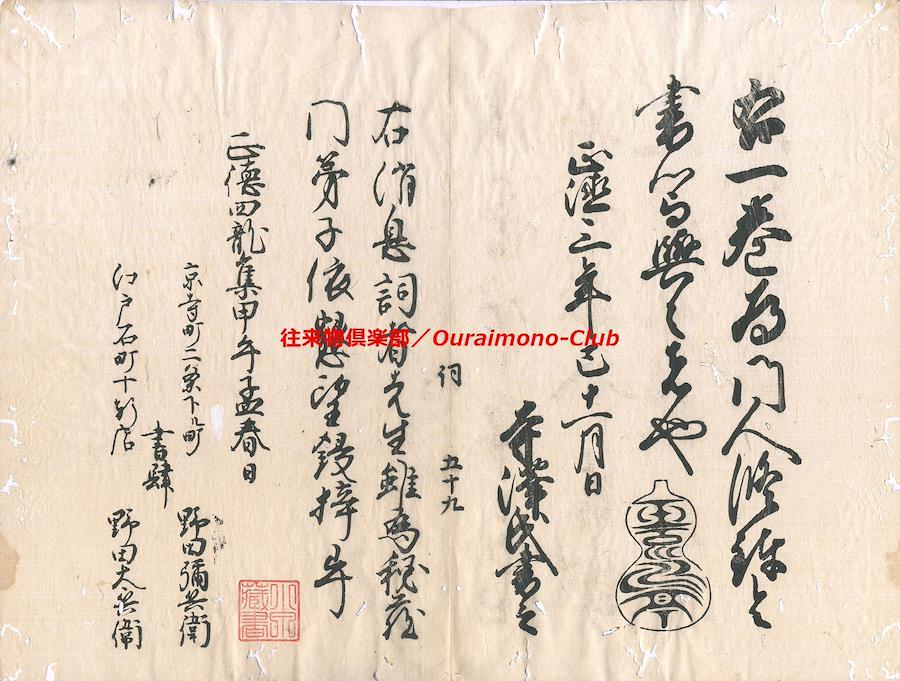 右一巻為門人
書写与之者也
正徳三年巳十一月日
寺澤氏書之
詞 五十九
右消息詞者先生雖為秘蔵
門弟子依懇望鋟梓畢
正徳四龍集甲午孟春日
京寺町二条下ル町
野田彌兵衛
書肆
江戸石町十軒店
野田太兵衛
往来物倶楽部／Ouraimono-Club